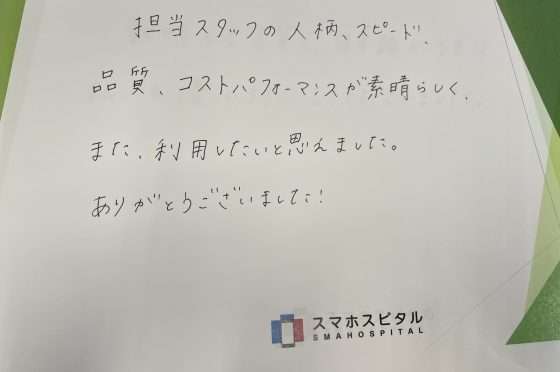 担当スタッフの人柄、スピード、
品質、コストパフォーマンスが素晴らしく、
また、利用したいと思えました。
ありがとうございました!
スマホスピタル
SMAHOSPITAL